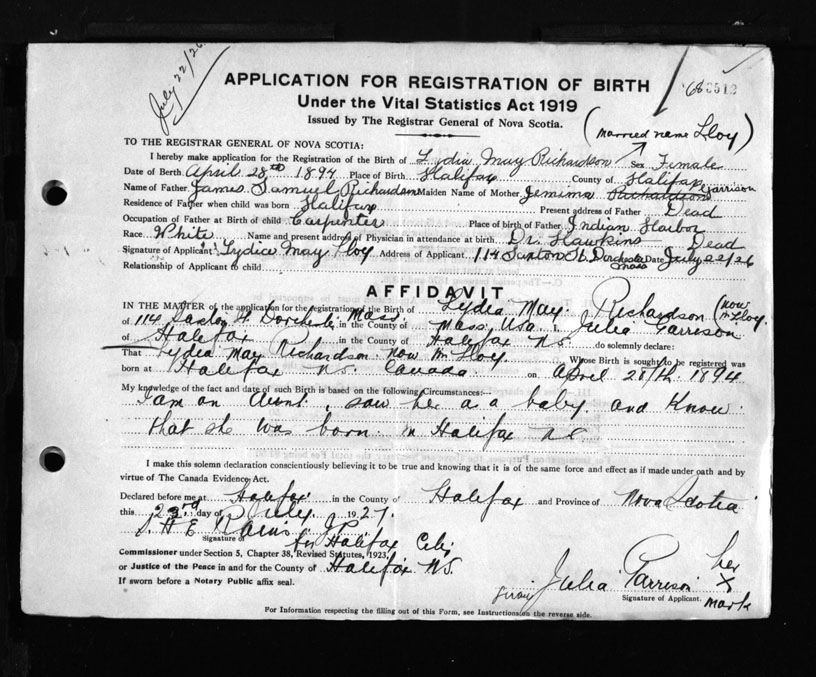 July 22/26
APPLICATION FOR REGISTRATION OF BIRTH
Under the Vital Statistics Act 1919
Issued by The Registrar General of Nova Scotia.
(Married name Lloy)
TO THE REGISTRAR GENERAL OF NOVA SCOTIA:
I hereby make application for the Registration of the Birth of Lydia May Richardson Sex Female
Date of Birth April 28th 1894 Place of Birth Halifax County of Halifax
Garrison
Name of Father James Samuel Richardson Maiden Name of Mother Jemima Richardson
Residence of Father when child was born Halifax Present address of Father Dead
Occupation of Father at Birth of child Carpenter Place of birth of Father Indian Harbor
Race White Name and present address of Physician in attendance at birth Dr. Hawkins Dead
Signature of Applicant Lydia May Lloy Address of Applicant 114 Saxton St. Dorchester Mass Date July 22/26
Relationship of Applicant to child
AFFIDAVIT
IN THE MATTER of the application for the registration of the Birth of Lydia May Richardson (now M. Lloy.
of 114 Saxton St Dorchester Mass. in the County of Mass, Usa I, Julia Garrison
of Halifax in the County of Halifax N.S. do solemnly declare:
That Lydia May Richardson now M. Lloy Whose Birth is sought to be registered was
born at Halifax N.S. Canada on April 28th 1894
My knowledge of the fact and date of such Birth is based on the following Circumstances:—
I am an Aunt, saw her as a baby and know
that she was born in Halifax N S
I make this solemn declaration conscientiously believing it to be true and knowing that it is of the same force and effect as if made under oath and by
virtue of The Canada Evidence Act.
Declared before me at Halifax in the County of Halifax and Province of Nova Scotia
this 23rd day of July 1927.
J.P.
Signature of
for Halifax City
Commissioner under Section 5, Chapter 38, Revised Statutes, 1923,
or Justice of the Peace in and for the County of Halifax N.S.
If sworn before a Notary Public affix seal.
Julia Garrison her X mark
Signature of Applicant.
For Information respecting the filling out of this Form, see Instructions on the reverse side.